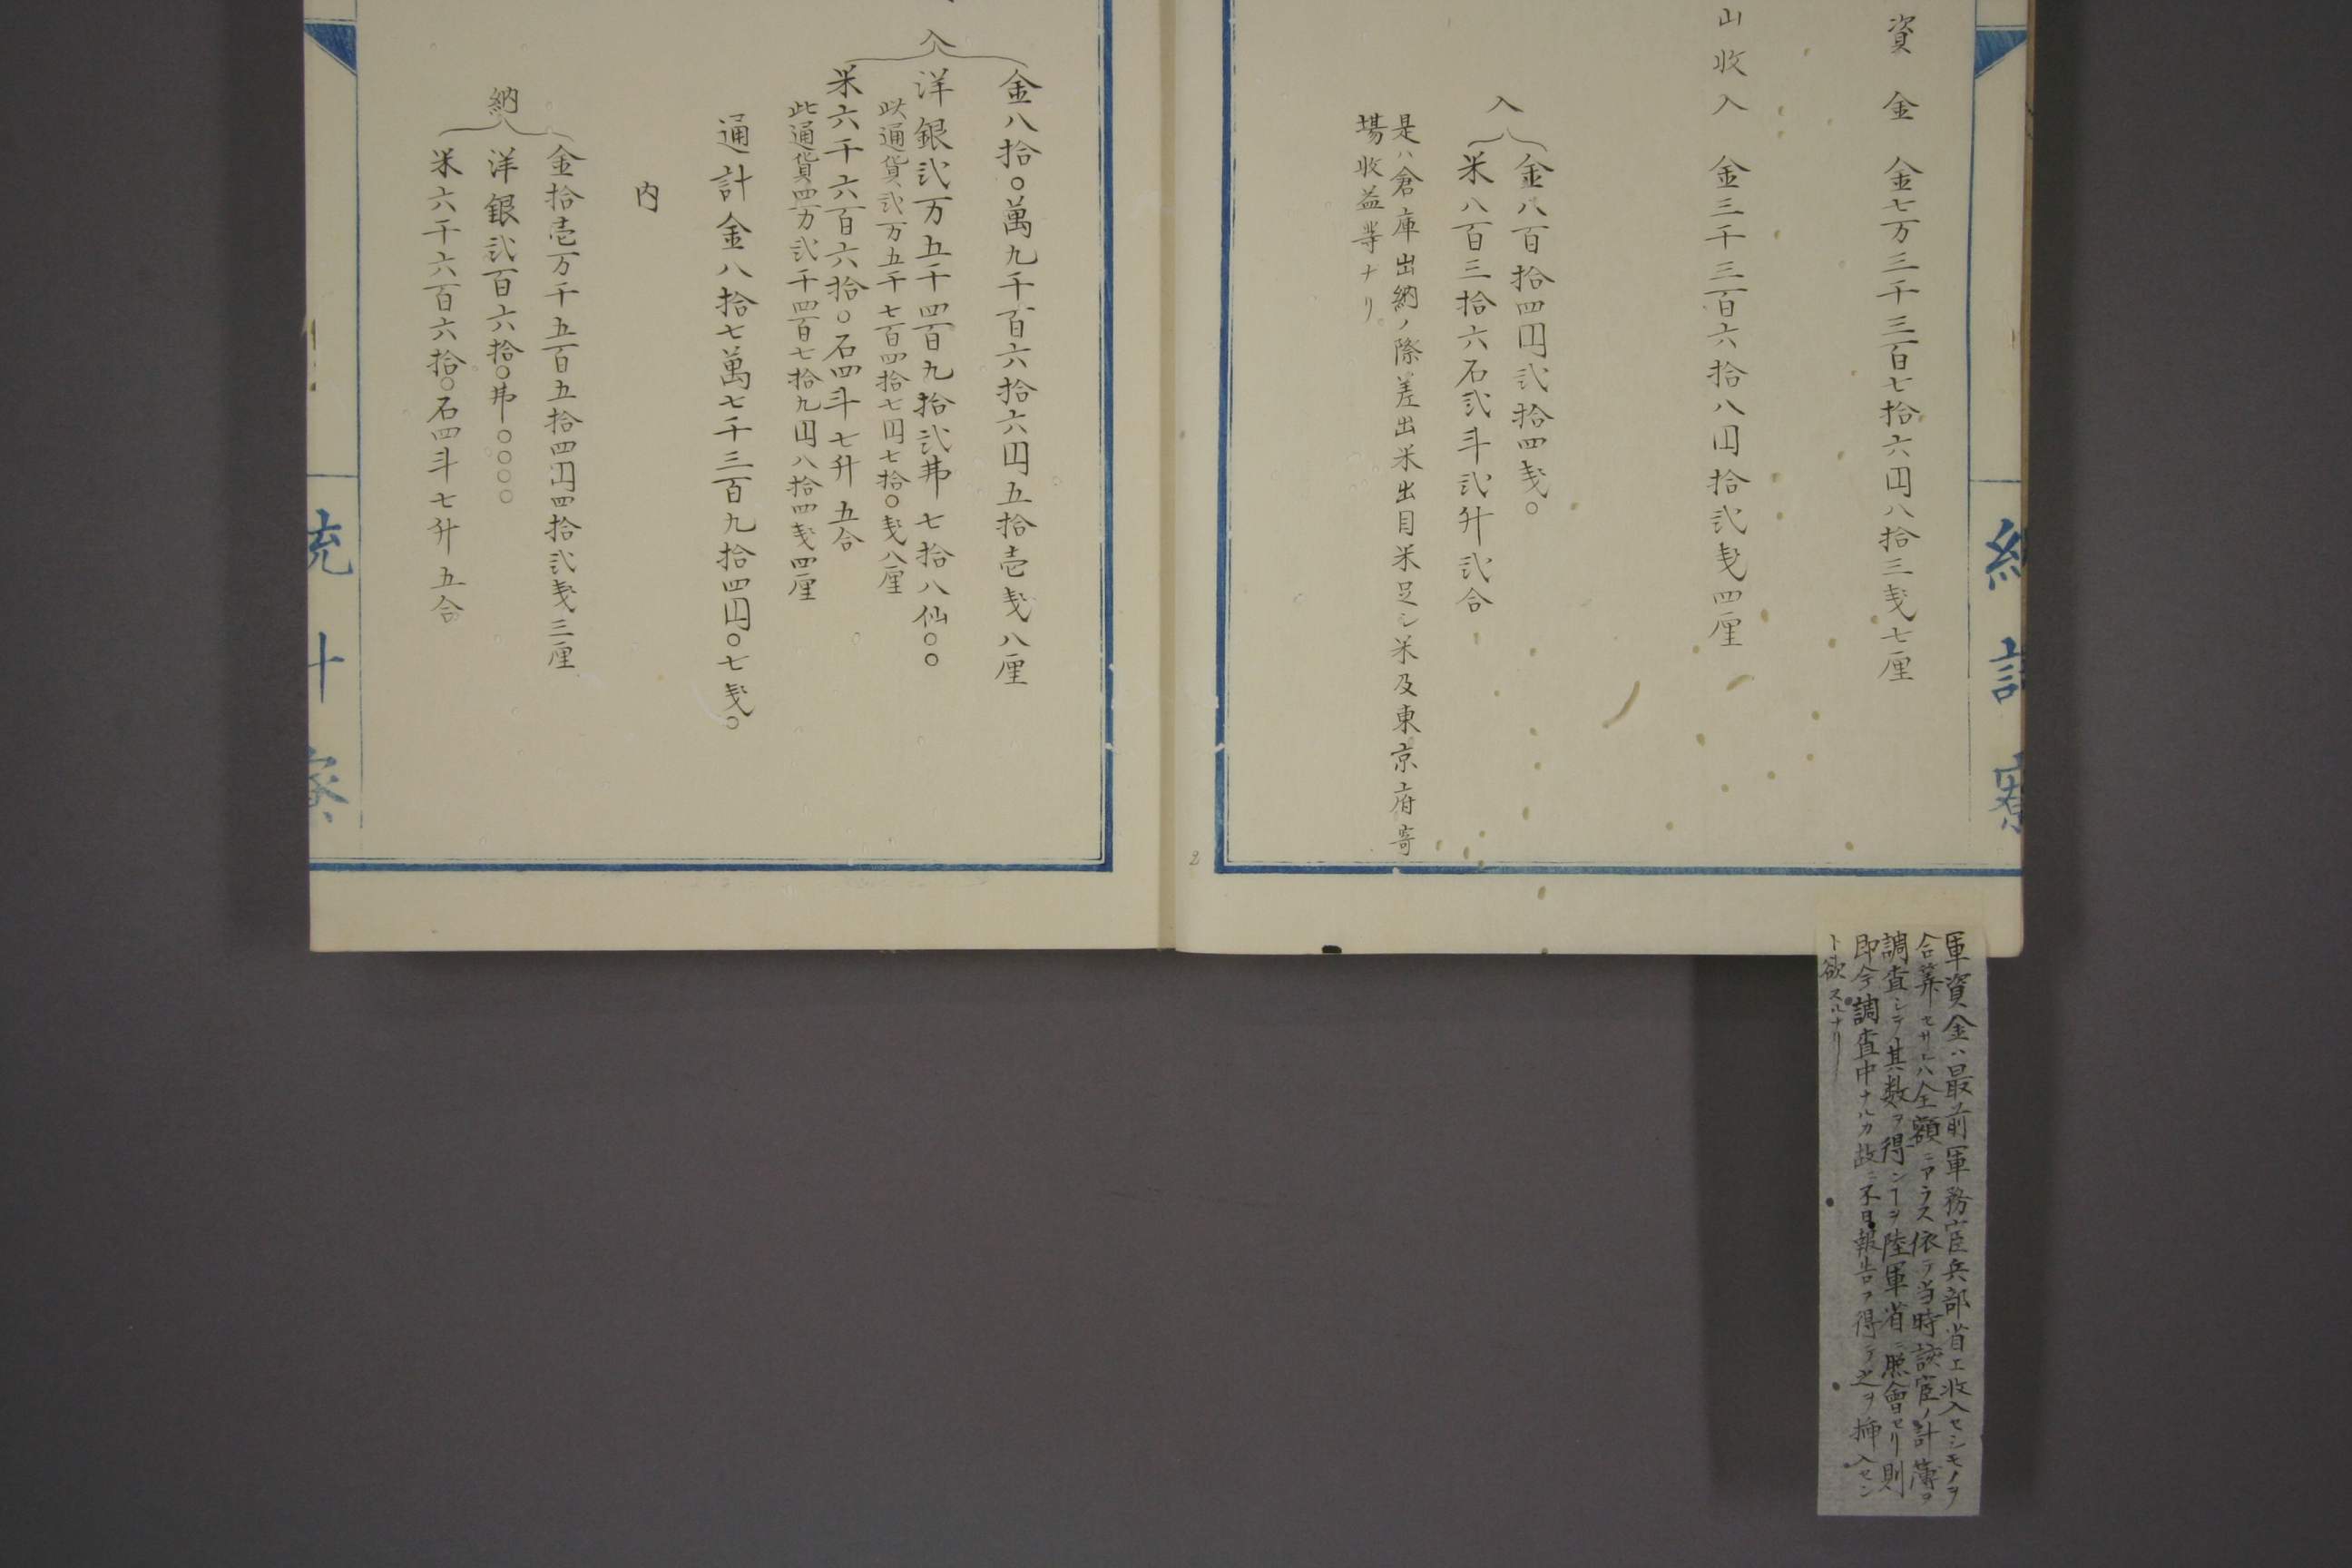 資金 金七万三千三百七拾六円八拾三戔七厘
山收入 金三千三百六拾八円拾弐戔四厘
入
金八百拾四円弐拾四戔〇
米八百三拾六石弐斗弐升弐合
是ハ倉庫出納ノ際差出米出目米足シ米及東京府寄
場收益等ナリ
統計寮
軍資金ハ最前軍務官兵部省エ收入セシモノヲ
合算セサレハ全額ニアラス依テ当時該官ノ計簿ヲ
調査シテ其数ヲ得ンヿヲ陸軍省ニ照會セリ則
即今調査中ナルカ故ニ不日報告ヲ得テ之ヲ挿入セン
ト欲スルナリ
2
入
金八拾〇萬九千百六拾六円五拾壱戔八厘
洋銀弐万五千四百九拾弐弗七拾八仙〇〇
此通貨弐万五千七百四拾七円七拾〇戔八厘
米六千六百六拾〇石四斗七升五合
此通貨四万弐千四百七拾九円八拾四戔四厘
通計金八拾七萬七千三百九拾四円〇七戔〇
内
納
金拾壱万千五百五拾四円四拾弐戔三厘
洋銀弐百六拾〇弗〇〇〇〇
米六千六百六拾〇石四斗七升五合
統計寮